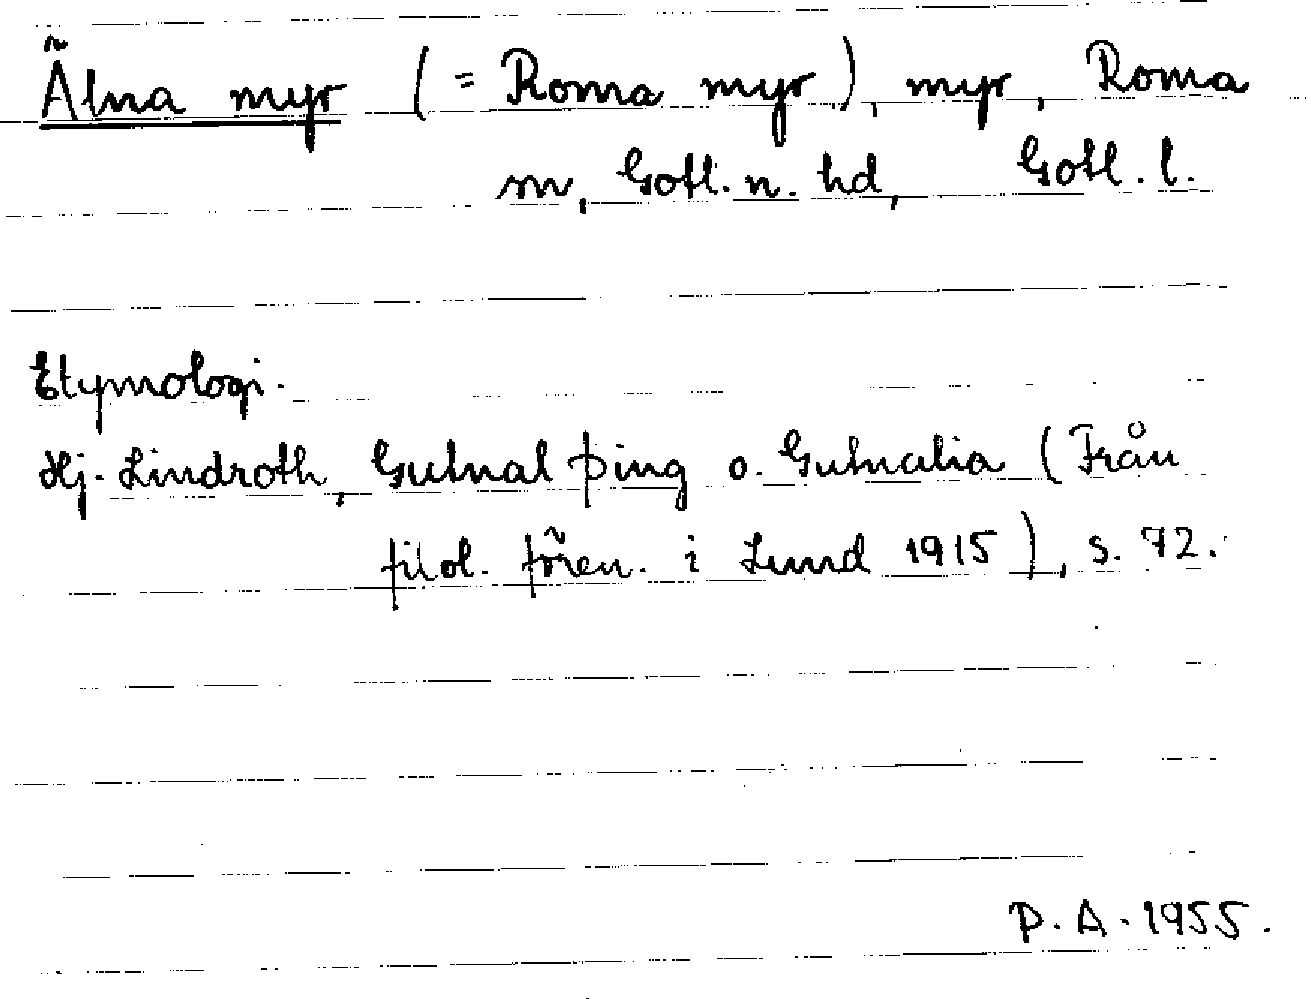 Älna myr (= Roma myr), myr, Roma
sn, Gotl. n. hd, Gotl. l.
Etymologi.
Hj. Lindroth, Gutnal þing o. Gutnalia (Från
filol. fören. i Lund 1915), s. 72.
P. A. 1955.